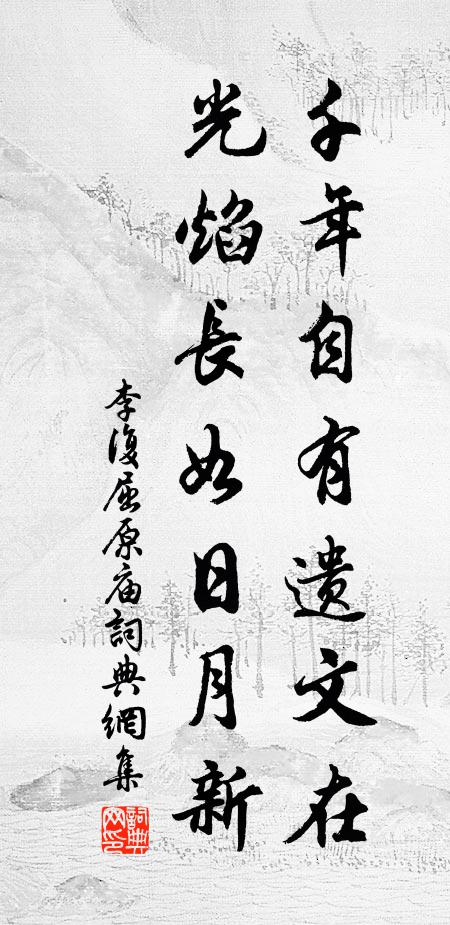 千年自有遺文在
光焰長如日月新
李復屈原庙詞典網集
詞典网印